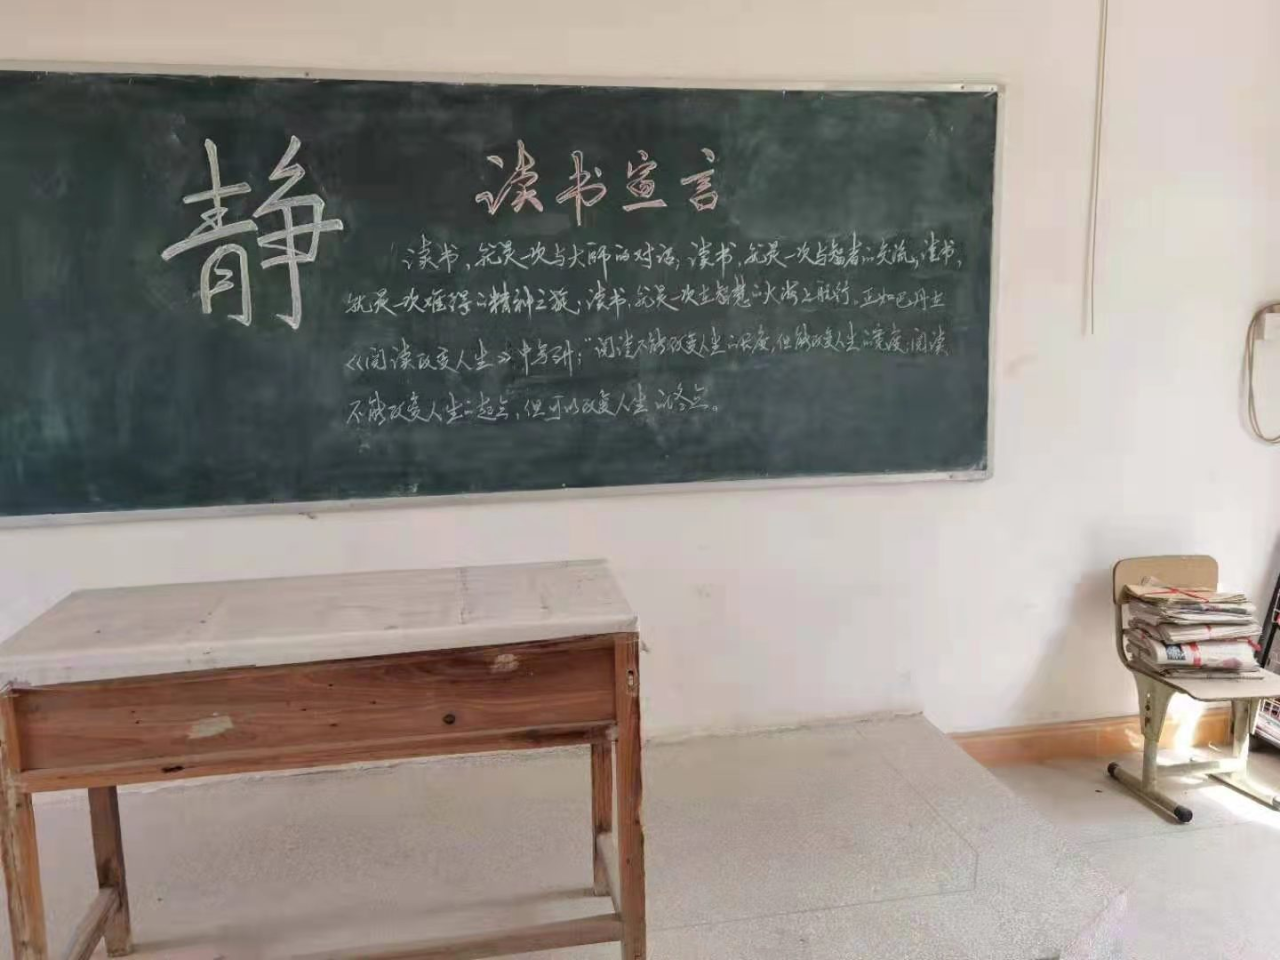 静
读书宣言
读书，就是一次与大师的对话；读书，就是一次与智者的交流；读书，
就是一次难得的精神之旅；读书，就是一次在智慧的大海上航行。正如巴丹在
《阅读改变人生》中写到：“阅读不能改变人生的长度，但能改变人生的宽度；阅读
不能改变人生的起点，但可以改变人生的终点。